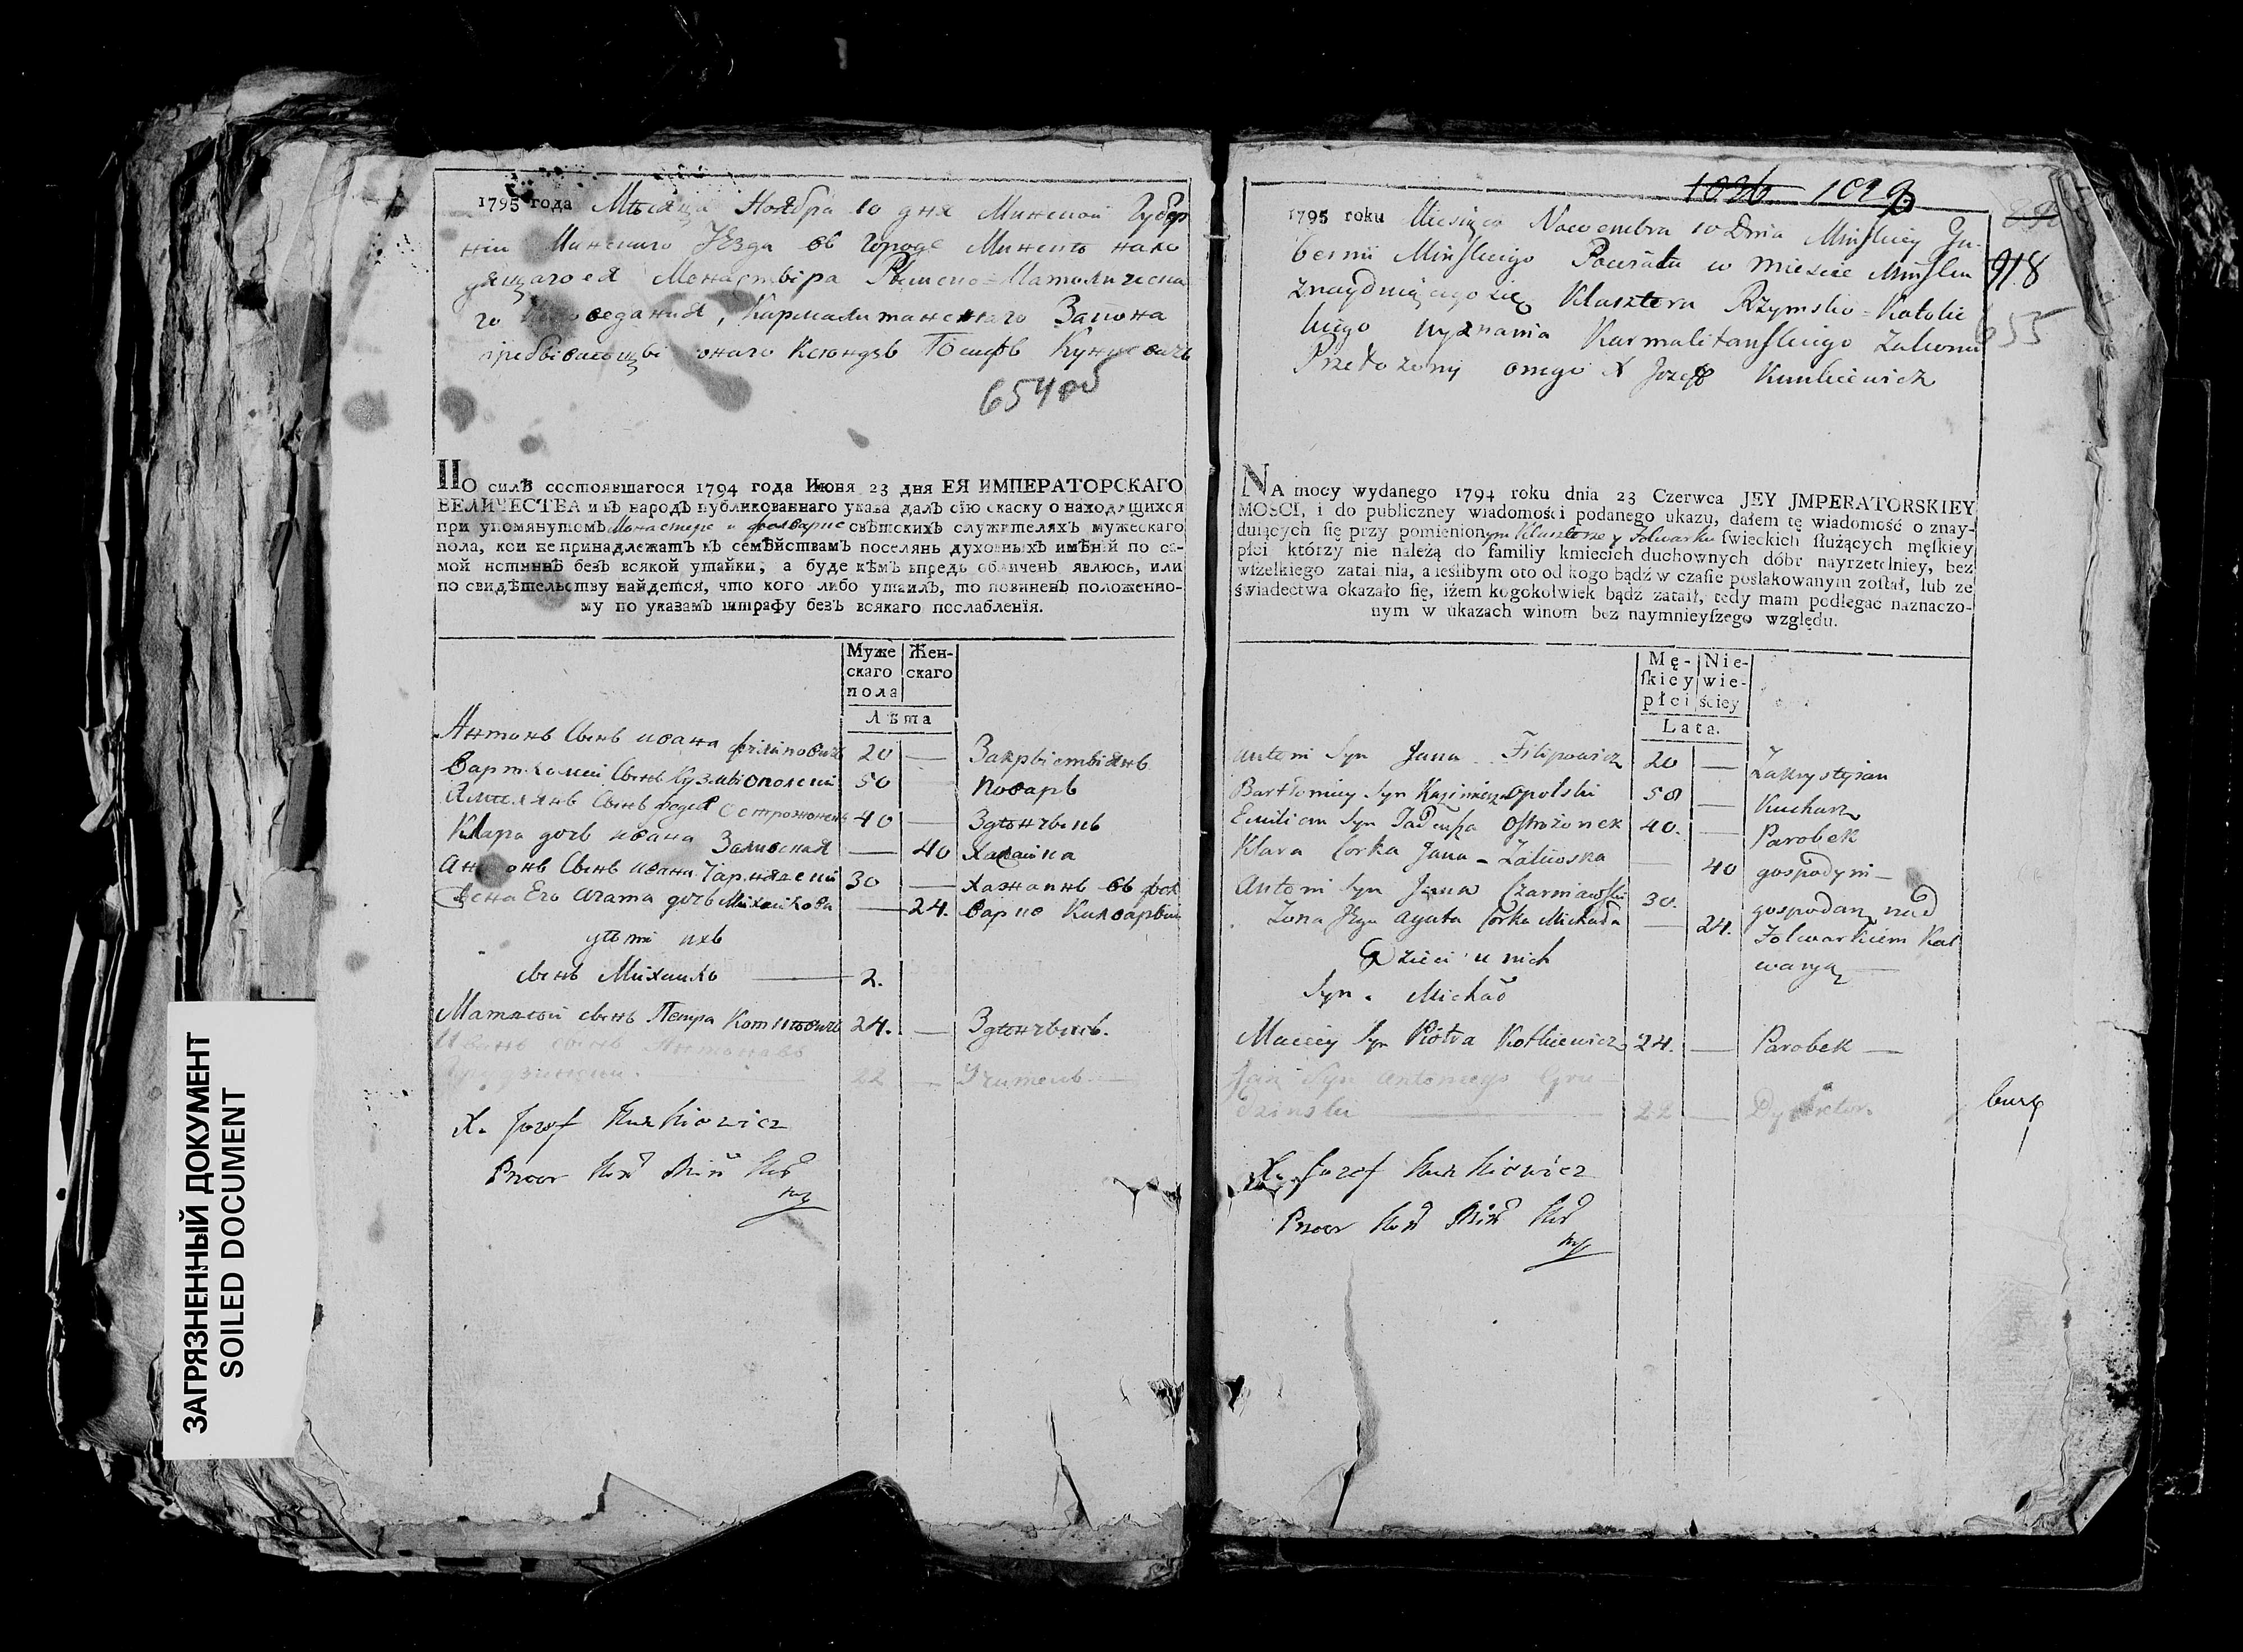 ЗАГРЯЗНЕННЫЙ ДОКУМЕНТ
SOILED DOCUMENT
1795 года Мѣсяца Ноября 10 дня Минской Губер
нии Минскаго Уезда въ городе Минскѣ нахо
дящагося Монастыра Римско=Католическа
го исповедания, Кармалитанскаго Закона
онаго Ксіондзъ Іосифъ
654 об
ПО силѣ состоявшагося 1794 года Июня 23 дня ЕЯ ИМПЕРАТОРСКАГО
ВЕЛИЧЕСТВА и въ народъ публикованнаго указа далъ сію скаску о находящихся
при упомянутомъ Монастыре и фолварке свѣтскихъ служителяхъ мужескаго
пола, кои не принадлежатъ къ семѣйствамъ поселянъ духовныхъ имѣній по са-
мой истиннѣ безъ всякой утайки; а буде кѣмъ впредь обличенъ явлюсь, или
по свидѣтельству найдется, что кого либо утаилъ, то повиненъ положенно-
му по указамъ штрафу безъ всякаго послабленія.
Муже скаго пола Жен- скаго
Лѣта
Антонъ Сынъ Ивана Филиповичъ 20 — Закрыстыянъ
Бартломей Сынъ Опольский 50 — Поваръ
Сынъ 40 —
Клара дочь Ивана Залиская — 40
Антонъ Сынъ Ивана Чарнявский 30 — въ фол
Жена Его Агата дочь Михайлова — 24. варке Калварыи
дѣти ихъ
Сынъ Михайло — 2.
Матвей сынъ Петра Коткевичъ 24. —
Иванъ сынъ Антонавъ
Грудзинский. 22 — Учитель —
X. Jozef Kunkiewicz
Przeor
1026 1029
1795 roku Miesiąca Nowembra 10 Dnia Minskiey Gu-
bernii Minskiego Powiatu w Miescie Minsku
znayduiącego się Klasztoru Rzymsko=Katolic
kiego wyznania Karmalitanskiego Zakonu
Przełożony onego X Jozeff Kunkiewicz
918
655
NA mocy wydanego 1794 roku dnia 23 Czerwca JEY JMPERATORSKIEY
MOSCI, i do publiczney wiadomości podanego ukazu, dałem tę wiadomość o znay-
duiących się przy pomienionym Klasztorze y Folwarku swieckich służących męſkiey
płci którzy nie należą do familiy kmiecich duchownych dóbr nayrzetelniey, bez
wſzelkiego zataienia, a ieślibym oto od kogo bądź w czaſie poslakowanym zoſtał, lub ze
świadectwa okazało ſię, iżem kogokolwiek bądź zataił, tedy mam podlegać naznaczo-
nym w ukazach winom bez naymnieyſzego względu.
Mę- ſkiey płci Nie- wie- ściey
Lata.
Antoni Syn Jana Filipowicz 20 — Zakrystyian
Bartłomiey Syn Kazimierza Opolski 50 — Kucharz
Emilian Syn Tadeusza Ostrożonek 40. — Parobek
Klara Corka Jana - Zaliwska — 40 gospodyni —
Antoni Syn Jana Czarniawski 30. gospodarz nad
Zona Jego Agata Corka Michała — 24. Folwarkiem Kal
Dzieci u nich waryą —
Syn. Michał
Maciey Syn Piotra Kotkiewicz 24. — Parobek —
Jan Syn Antoniego Gru-
dzinski — 22 — Dyrektor
X. Jozef Kunkiewicz
Przeor